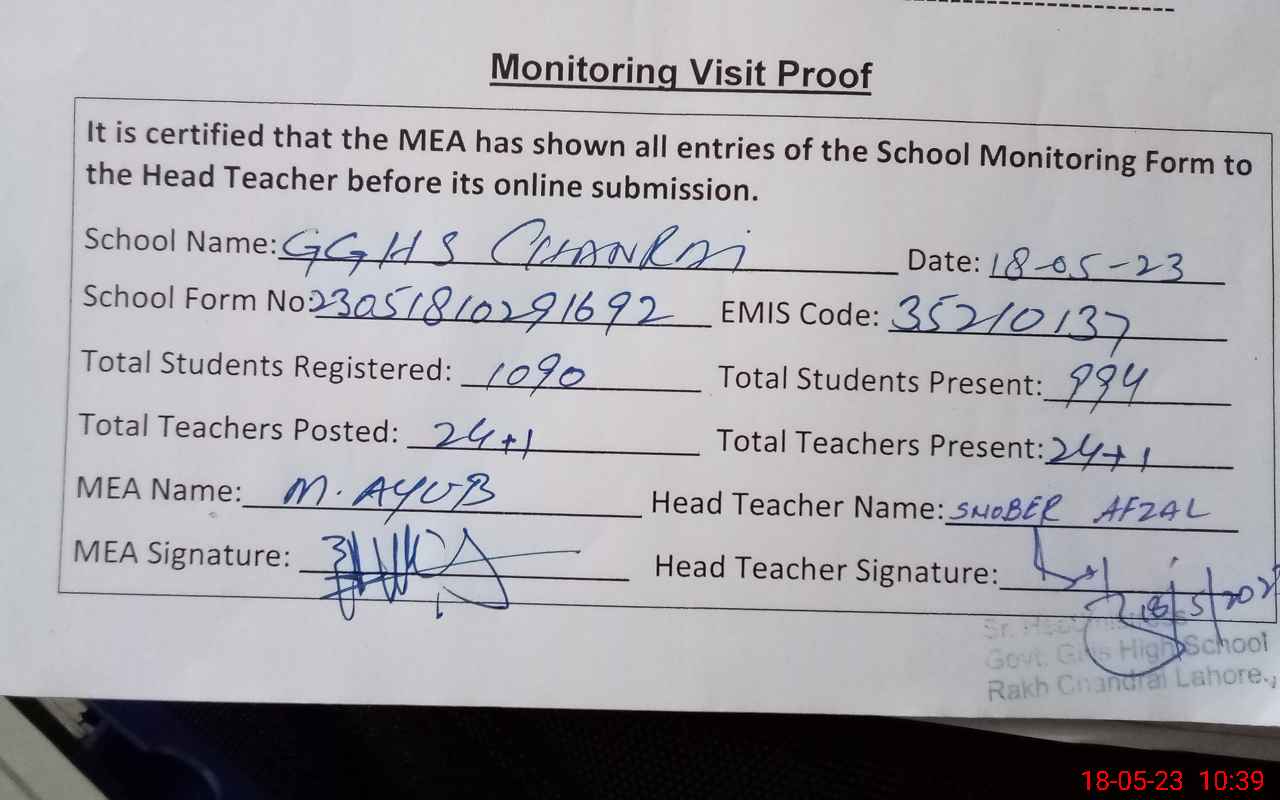 Monitoring Visit Proof
It is certified that the MEA has shown all entries of the School Monitoring Form to
the Head Teacher before its online submission.
School Name: GGHS CHANRAI Date: 18-05-23
School Form No: 23051810291692 EMIS Code: 35210137
Total Students Registered: 1090 Total Students Present: 994
Total Teachers Posted: 24+1 Total Teachers Present: 24+1
MEA Name: M. AYUB Head Teacher Name: SNOBER AFZAL
MEA Signature: Head Teacher Signature:
18/5/202
Sr.
Govt. Girls High School
Rakh Chandrai Lahore.
18-05-23 10:39